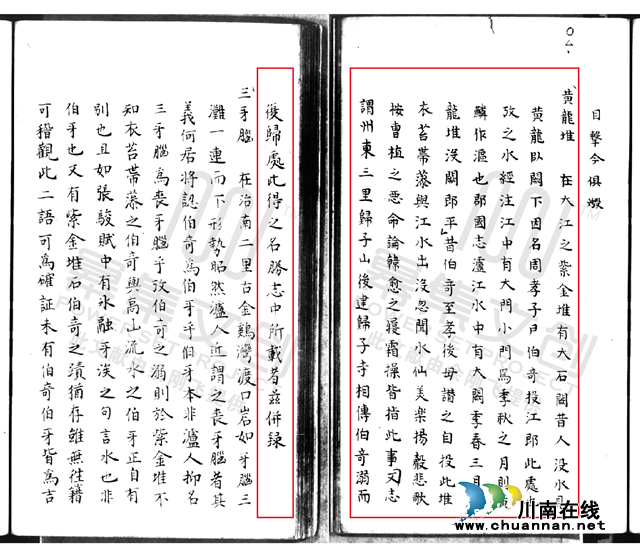 目擊今俱燬
黄龍堆 在大江之紫金堆有大石闕昔人没水見
黄龍卧闕下因名周孝子尹伯奇投江郎此處
攷之水經注江中有大門小門焉季秋之月則
鱗作漚也郡國志瀘江水中有大闕季春三月
龍堆没闕郎平昔伯奇至孝後母譛之自投此堆
衣苔帶藻與江水出没忽聞水仙美樂揚聲悲歌
按曹植之惡命論韓愈之履霜操皆指此事又志
謂州東三里歸子山後建歸子寺相傳伯奇溺而
後歸處此得之名勝志中所載者茲併錄
三牙腦 在治南二里古金鷄灣渡口岩如牙腦三
灘一連而下形勢昭然瀘人近謂之喪牙腦者其
義何居將認伯奇爲伯牙乎伯牙本非瀘人抑名
三牙腦爲喪牙腦乎攷伯奇之溺則於紫金堆不
知衣苔帶藻之伯奇與高山流水之伯牙正自有
别也且如張駿賦中有水融牙渙之句言水也非
伯牙也又有紫金堆石伯奇之蹟猶存雖無徃籍
可稽觀此二語可爲確証未有伯奇伯牙皆爲言
川南在线
www.chuannan.net